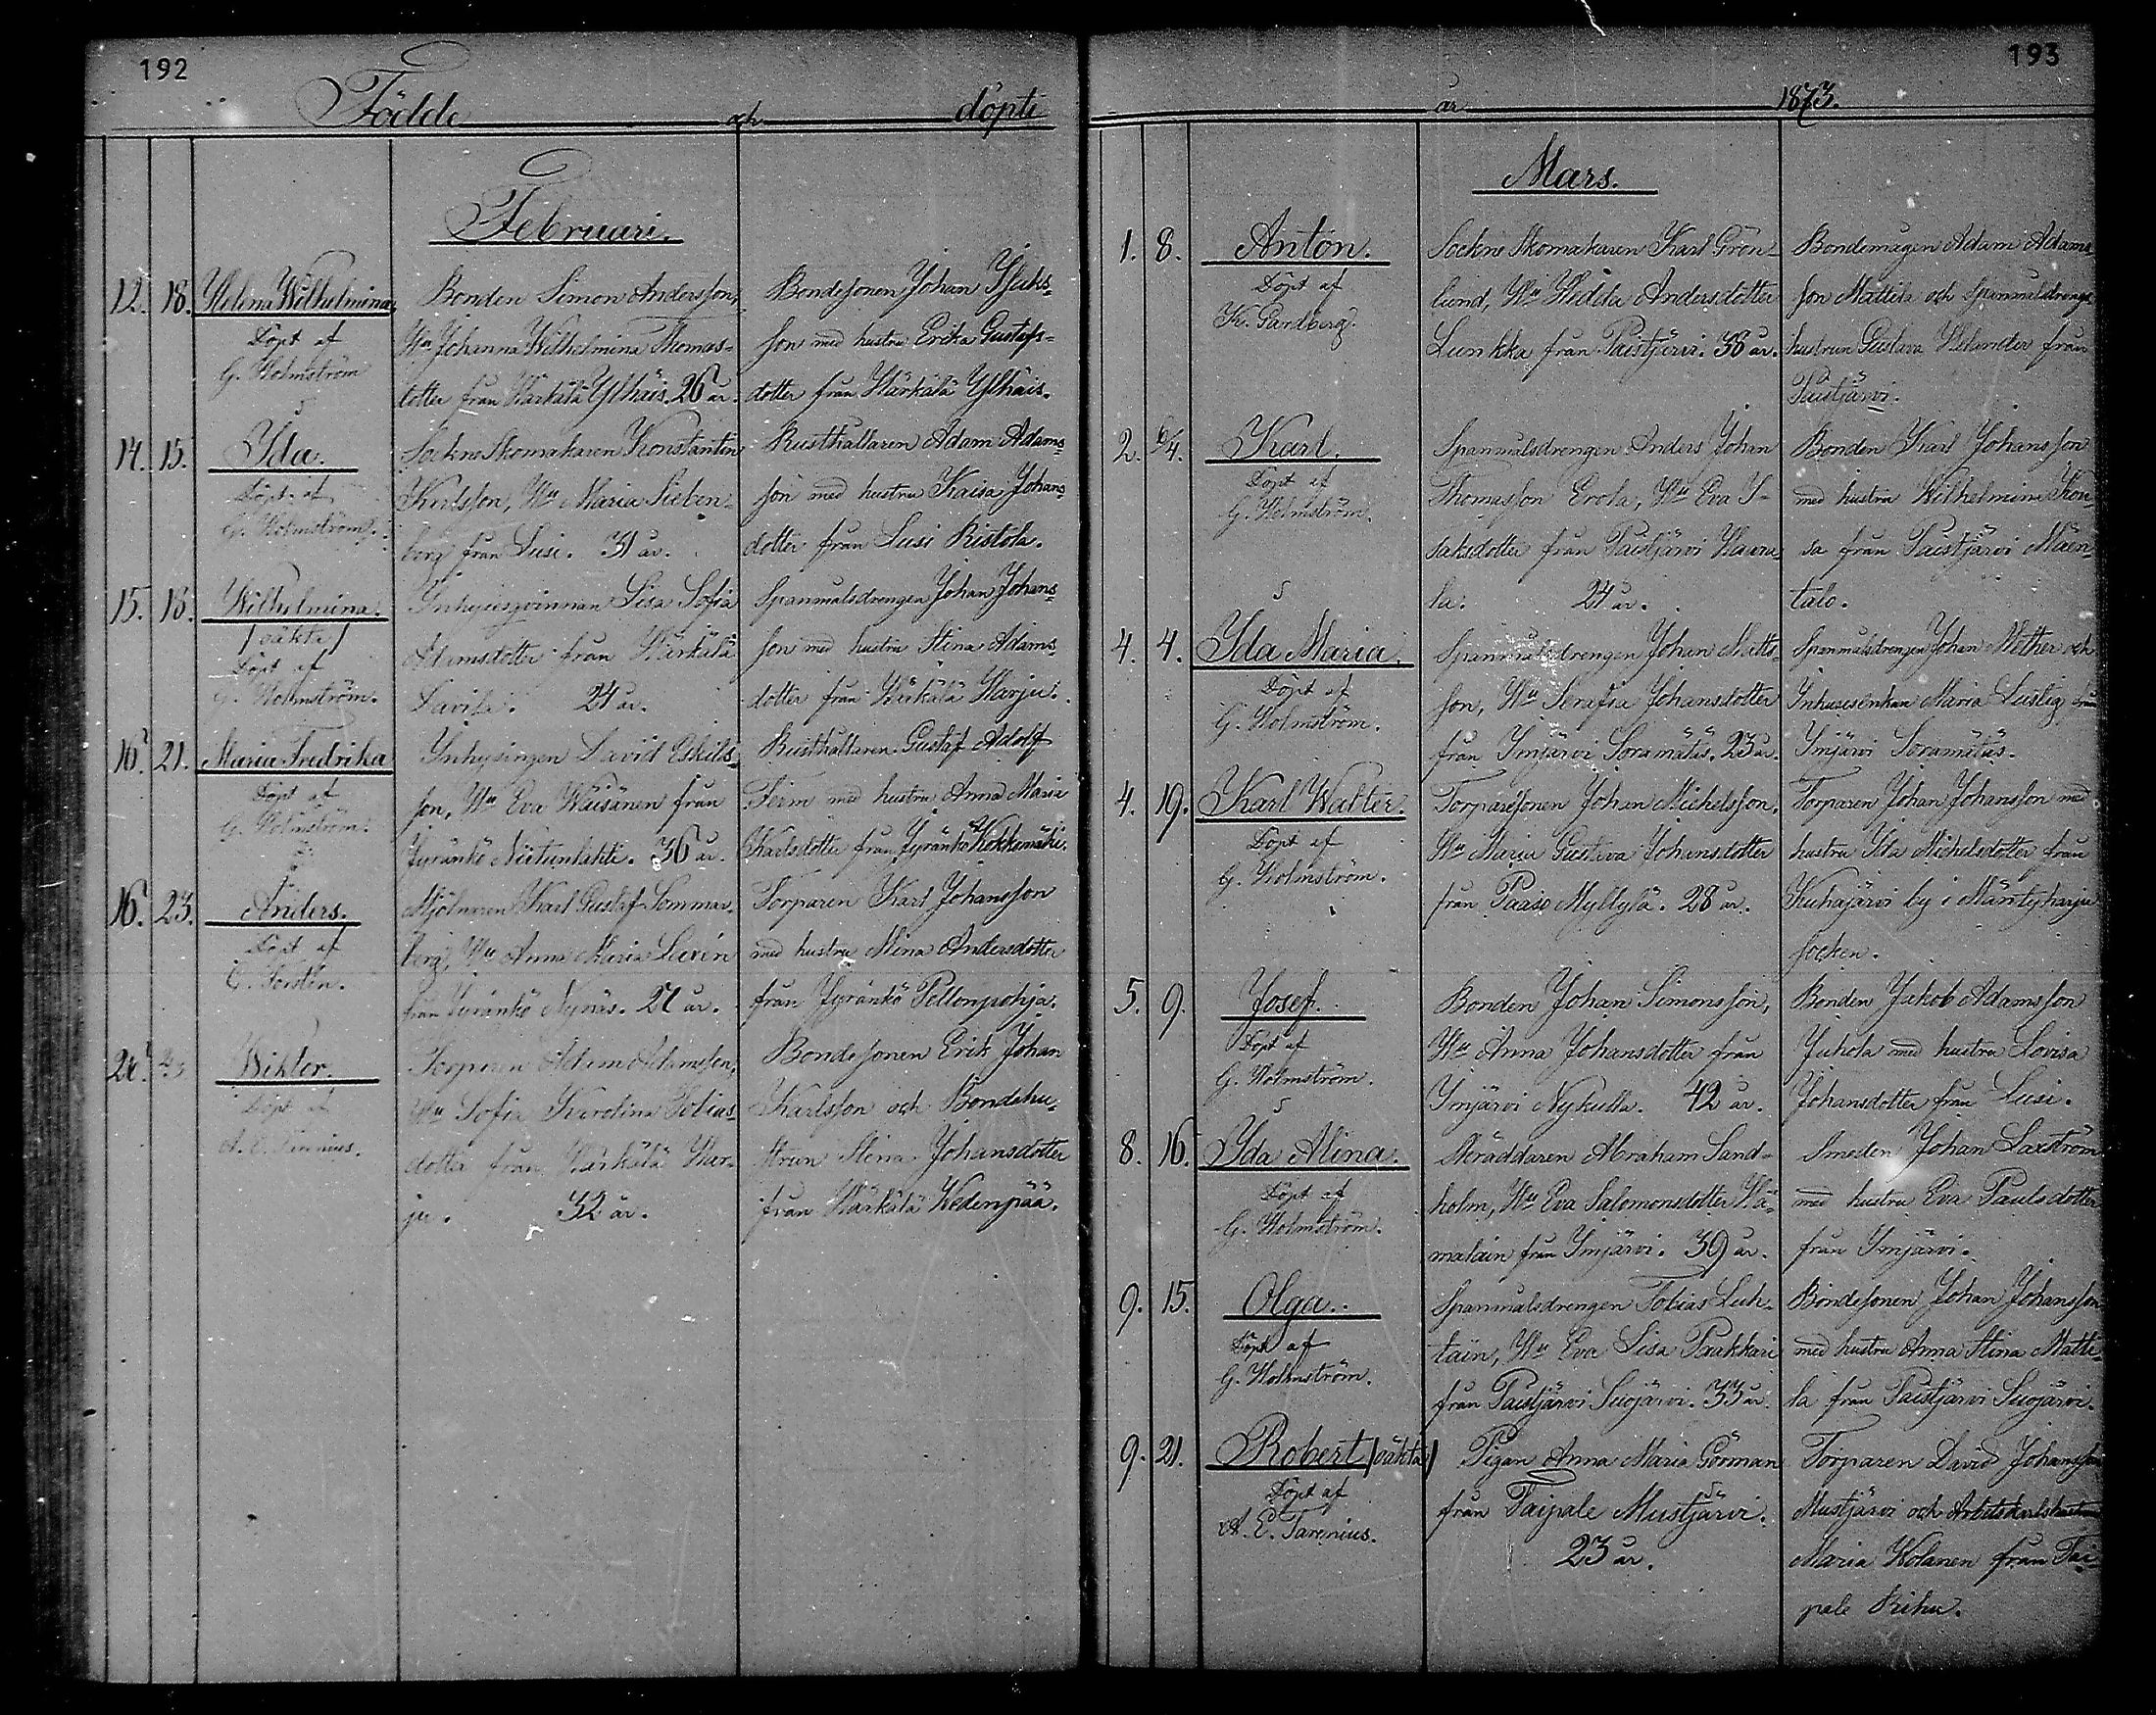 192
Födde och döpte
Februari.
12. 18. Helena Wilhelmina
Döpt af
G. Holmström
Bonden Simon Andersson,
Hu Johanna Wilhelmina Thomas-
dotter från Härkälä Ylhäis. 26 år.
Bondesonen Johan Isaks-
son med hustru Erika Gustafs-
dotter från Härkälä Ylhäis.
14. 15. Ida.
Döpt af
G. Holmström.
Sockne Skomakaren Konstantin
Karlsson, Hu Maria Sieben-
borg från Lusi. 31 år.
Rusthållaren Adam Adams-
son med hustru Kaisa Johans-
dotter från Lusi Ristola.
15. 18. Wilhelmina.
/oäkta/
Döpt af
G. Holmström.
Inhysesqvinnan Lisa Sofia
Adamsdotter från Härkälä
24 år.
Spanmålsdrengen Johan Johans-
son med hustru Stina Adams-
dotter från Härkälä Harju.
16. 21. Maria Fredrika
Döpt af
G. Holmström.
Inhysingen David Eskils-
son, Hu Eva Wäisänen från
Jyränkö Niitunlahti. 36 år.
Rusthållaren Gustaf Adolf
Ferm med hustru Anna Maria
Karlsdotter från Jyränkö Kokkomäki.
16. 23. Anders.
Döpt af
Mjölnaren Karl Gustaf Sommar-
berg, Hu Anna Maria Levén
från Jyränkö Nynäs. 27 år.
Torparen Karl Johansson
med hustru Mina Andersdotter
från Jyränkö Pellonpohja.
Wiktor.
Döpt af
A. E. Tarenius.
Torparen Adam Adamsson,
Hu Sofia Karolina Tobias-
dotter från Härkälä Har-
ju. 32 år.
Bondesonen Erik Johan
Karlsson och Bondehu-
strun Stina Johansdotter
från Härkälä Wedenpää.
193
år 1873.
Mars.
1. 8. Anton.
Döpt af
K. Sandberg.
Sockne Skomakaren Karl Grön-
lund, Hu Hedda Andersdotter
Lunkka från Paistjärvi. 38 år.
Bondemågen Adam Adams-
son Mattila och Spanmålsdrengs
hustrun Gustava Helander från
Paistjärvi.
2. 6/4. Karl.
Döpt af
G. Holmström.
Spanmålsdrengen Anders Johan
Thomasson Erola, Hu Eva I-
saksdotter från Paistjärvi Haura-
la. 24 år.
Bonden Karl Johansson
med hustru Wilhelmina Kou-
sa från Paistjärvi Mäen-
talo.
4. 4. Ida Maria.
Döpt af
G. Holmström.
Spanmålsdrengen Johan Matts-
son, Hu Serafia Johansdotter
från Imjärvi Soramätäs. 23 år.
Spanmålsdrengen Johan Mether och
Inhysesenkan Maria Luslig från
Imjärvi Soramätäs.
4. 19. Karl Walter.
Döpt af
G. Holmström.
Torparesonen Johan Michelsson,
Hu Maria Gustava Johansdotter
från Paaso Myllylä. 28 år.
Torparen Johan Johansson med
hustru Ida Michelsdotter från
Kuhajärvi by i Mäntyharju
socken.
5. 9. Josef.
Döpt af
G. Holmström.
Bonden Johan Simonsson,
Hu Anna Johansdotter från
Imjärvi Nykulla. 42 år.
Bonden Jakob Adamsson
Juhola med hustru Lovisa
Johansdotter från Lusi.
8. 16. Ida Alina.
Döpt af
G. Holmström.
Skräddaren Abraham Sand-
holm, Hu Eva Salomonsdotter Hä-
mäläin från Imjärvi. 39 år.
Smeden Johan Laxström
med hustru Eva Paulsdotter
från Imjärvi.
9. 15. Olga.
Döpt af
G. Holmström.
Spanmålsdrengen Tobias Luh-
tain, Hu Eva Lisa Paakkari
från Paistjärvi Suojärvi. 33 år.
Bondesonen Johan Johansson
med hustru Anna Stina Matti-
la från Paistjärvi Suojärvi.
9. 21. Robert /oäkta/
Döpt af
A. E. Tarenius.
Pigan Anna Maria Görman
från Taipale Mustjärvi.
23 år.
Torparen David Johansson
Mustjärvi och Arbetskarlshustrun
Maria Holanen från Tai-
pale Rihu.